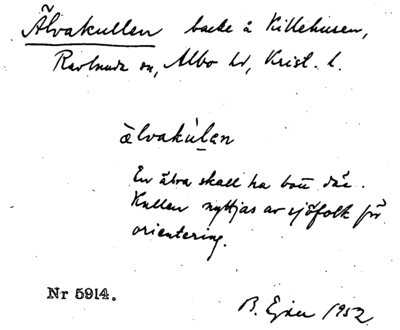 Älvakullen backe å Killehusen,
Ravlunda sn, Albo hd, Krist. l.
älvakùlan
En älva skall ha bott där.
Kullen nyttjas av sjöfolk för
orientering.
Nr 5914.
B. Ejder 1952